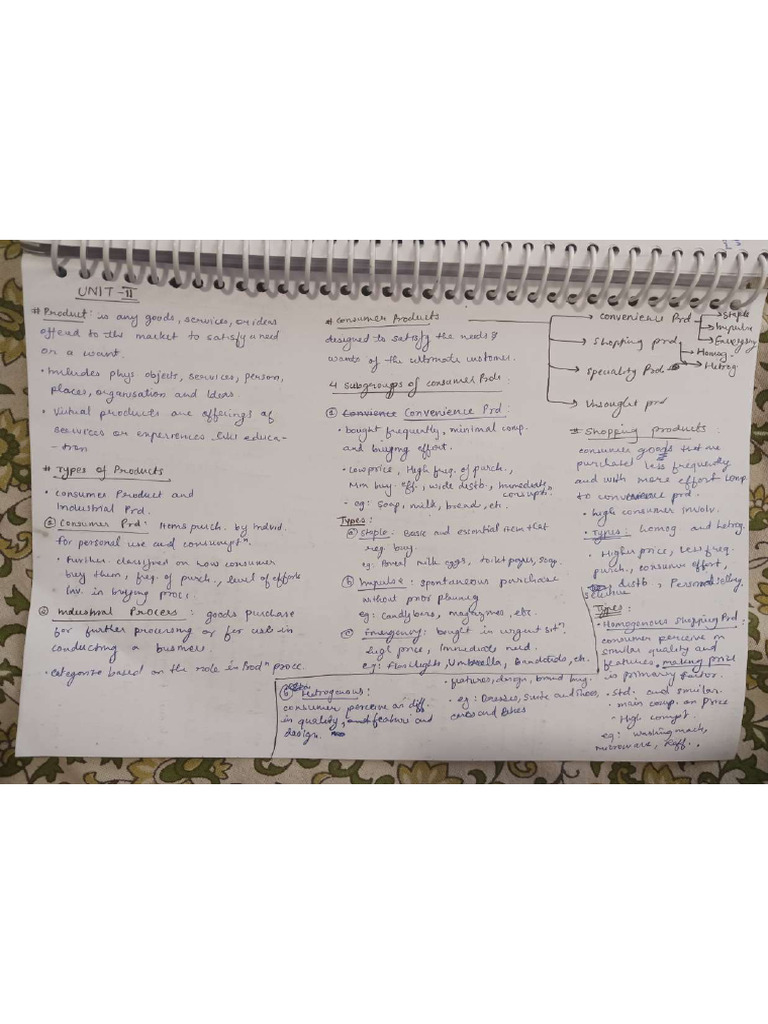 UNIT-II
# Product: is any goods, services, or ideas
offerd to the market to satisfy a need
or a want.
• Includes phys objects, services, person,
places, organisation and Ideas
• Virtual products are offerings of
services or experiences like educa-
-tion
# Types of Products
• consumer Product and
Industrial Prd.
① Consumer Prd: Items purch. by individ.
for personal use and consumptn.
• Further classified on how consumer
buy them, freq of purch., level of efforts
Inv. in buying procs.
② Industrial Process: goods purchase
for further processing or for use in
conducting a business.
• categorize based on the role in Prodn proce.
# Consumer Products
designed to satisfy the needs &
wants of the ultimate customer.
Convenience Prd
Staple
Impulse
Emergency
Shopping prd
Homog.
Hetrog.
Speciality Prd.
Unsought prd
4 Subgroups of consumer Prds:
① Convenience Prd:
• bought frequently, minimal comp.
and buying effort.
• low price, High freq. of purch.,
Min buy. eff., wide distb., Immediate
consuptn
- eg: Soap, milk, bread, etc.
Types:
ⓐ Staple: Basic and essential item that
reg. buy.
eg: Bread milk eggs, toilet paper, soap.
ⓑ Impulse: spontaneous purchase
without prior planning
eg: Candy bars, magazines, etc.
ⓒ Emergency: bought in urgent sitn,
high price, Immediate need.
eg: flashlights, Umbrella, Bandaids, etc.
# Shopping products:
consumer goods that are
purchased less frequently
and with more effort comp.
to convenience prd.
• high consumer involv.
• Types: homog and hetrog.
• Higher price, less freq.
purch., consumer effort,
selective distb, Personal selling.
Types:
• Homogenous Shopping Prd:
consumer perceive in
similar quality and
features, making price
is primary factor.
• Std. and similar.
- main comp. on Price
- High compt.
eg: washing mach,
microwave, Reff..
ⓑ Hetrogenous:
consumer perceive as diff.
in quality, feature and
design.
• features, design, brand buy.
• eg: Dresses, Suite and shoes,
cars and Bikes